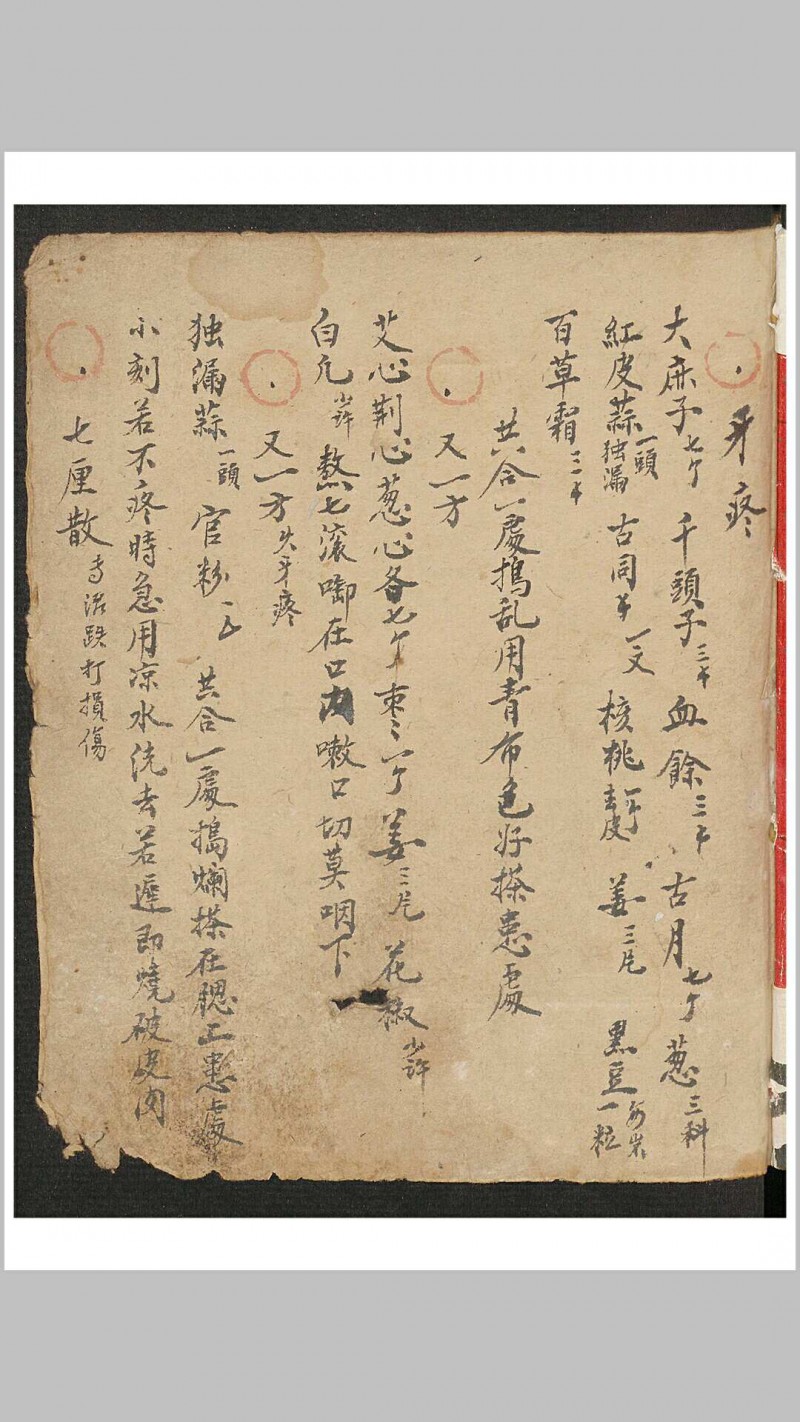 牙疼
大麻子七个 千頭子三 血餘三 古月七个 葱三科
紅皮蒜一頭独漏 古同一文 核桃一个去皮 姜三片 黑豆每岁一粒
百草霜三
共合一處搗乱用青布包好搽患處
又一方
艾心荆心葱心各七个枣一个姜三片花椒少許
白凡少許熬七滚啣在口内嗽口切莫咽下
又一方 火牙疼
独漏蒜一頭 官粉 共合一處搗爛搽在腮上患處
小刻若不疼時急用凉水洗去若遲即燒破皮肉
七厘散 专治跌打損傷